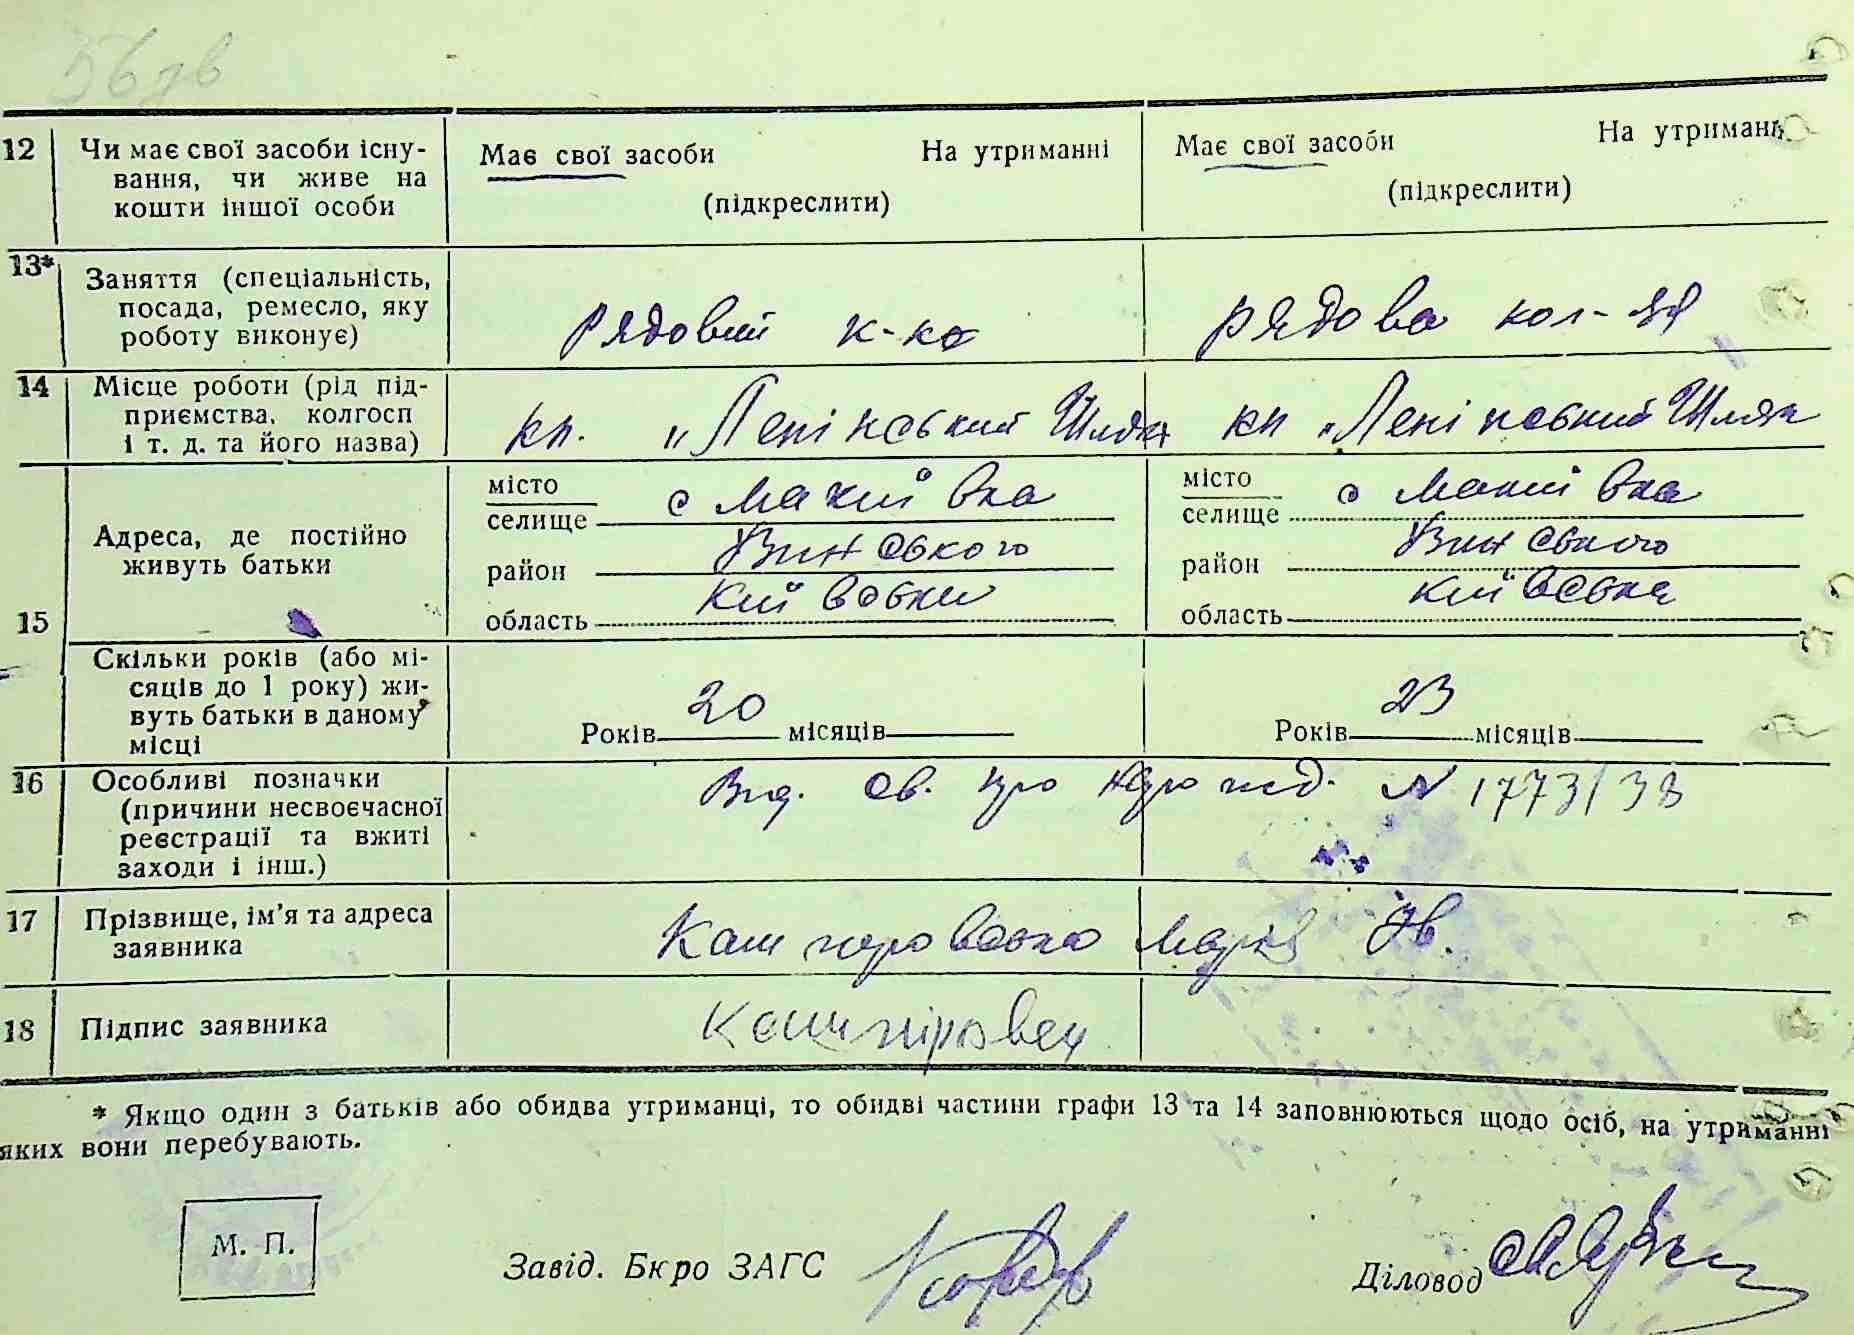 12 Чи має свої засоби існу- Має свої засоби На утриманні Має свої засоби На утриманн
вання, чи живе на
кошти іншої особи (підкреслити) (підкреслити)
13* Заняття (спеціальність,
посада, ремесло, яку рядовий к-ко рядова кол-
роботу виконує)
14 Місце роботи (рід під-
приємства, колгосп кп. „Ленінський Шлях кп „Ленінський Шлях
і т. д. та його назва)
місто с Макиївка місто с Макиївка
селище селище
Адреса, де постійно
живуть батьки район район
15 область Київська область Київська
Скільки років (або мі-
сяців до 1 року) жи-
вуть батьки в даному Років 20 місяців Років 23 місяців
місці
16 Особливі позначки Вид. св. про народж. № 1773/38
(причини несвоєчасної
реєстрації та вжиті
заходи і інш.)
17 Прізвище, ім'я та адреса Кашперовська Марія
заявника
18 Підпис заявника
* Якщо один з батьків або обидва утриманці, то обидві частини графи 13 та 14 заповнюються щодо осіб, на утриманні
яких вони перебувають.
М. П. Завід. Бюро ЗАГС Діловод